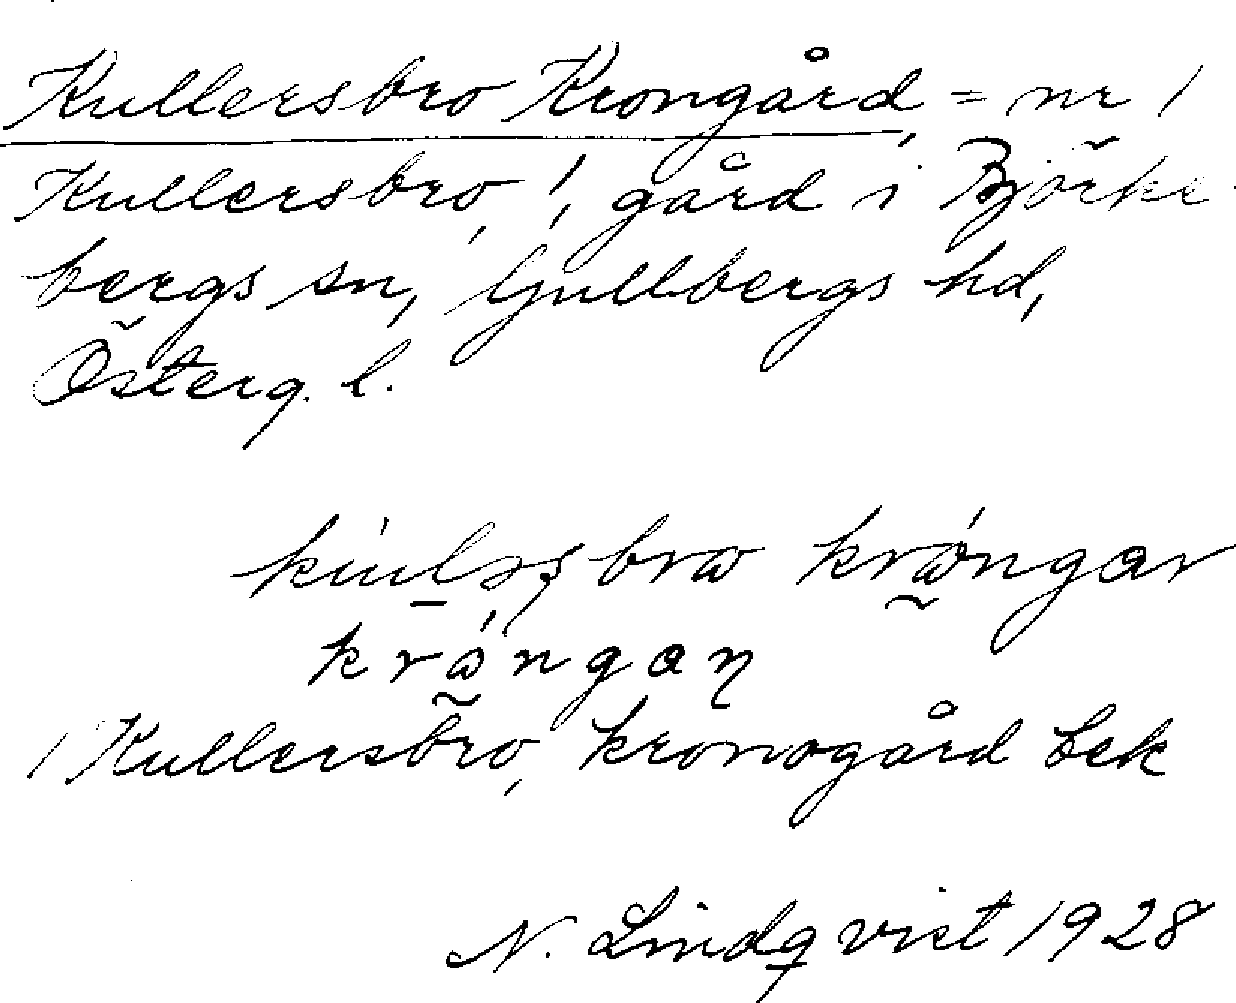 Kullersbro Krongård, = nr 1
Kullersbro, 1, gård i Björke-
bergs sn, Gullbergs hd,
Österg. l.
krångar
krångan
1 Kullersbro, kronogård Eek
N. Lindqvist 1928